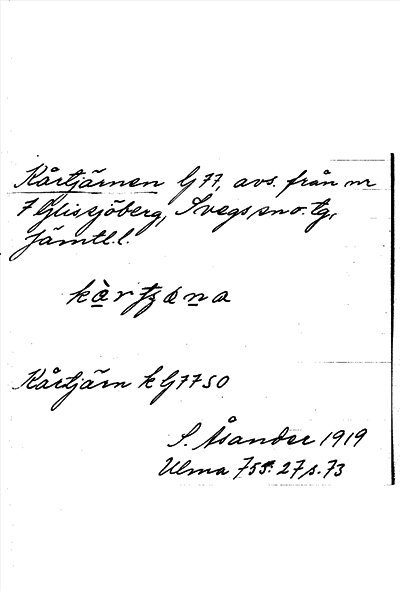 Kårtjärnen G 77, avs. från nr
7 Glissjöberg, Svegs sn o. tg,
Jämtl. l.
Kårtjärn k G 77 50
S. Åsander 1919
Ulma 755: 27 s. 73